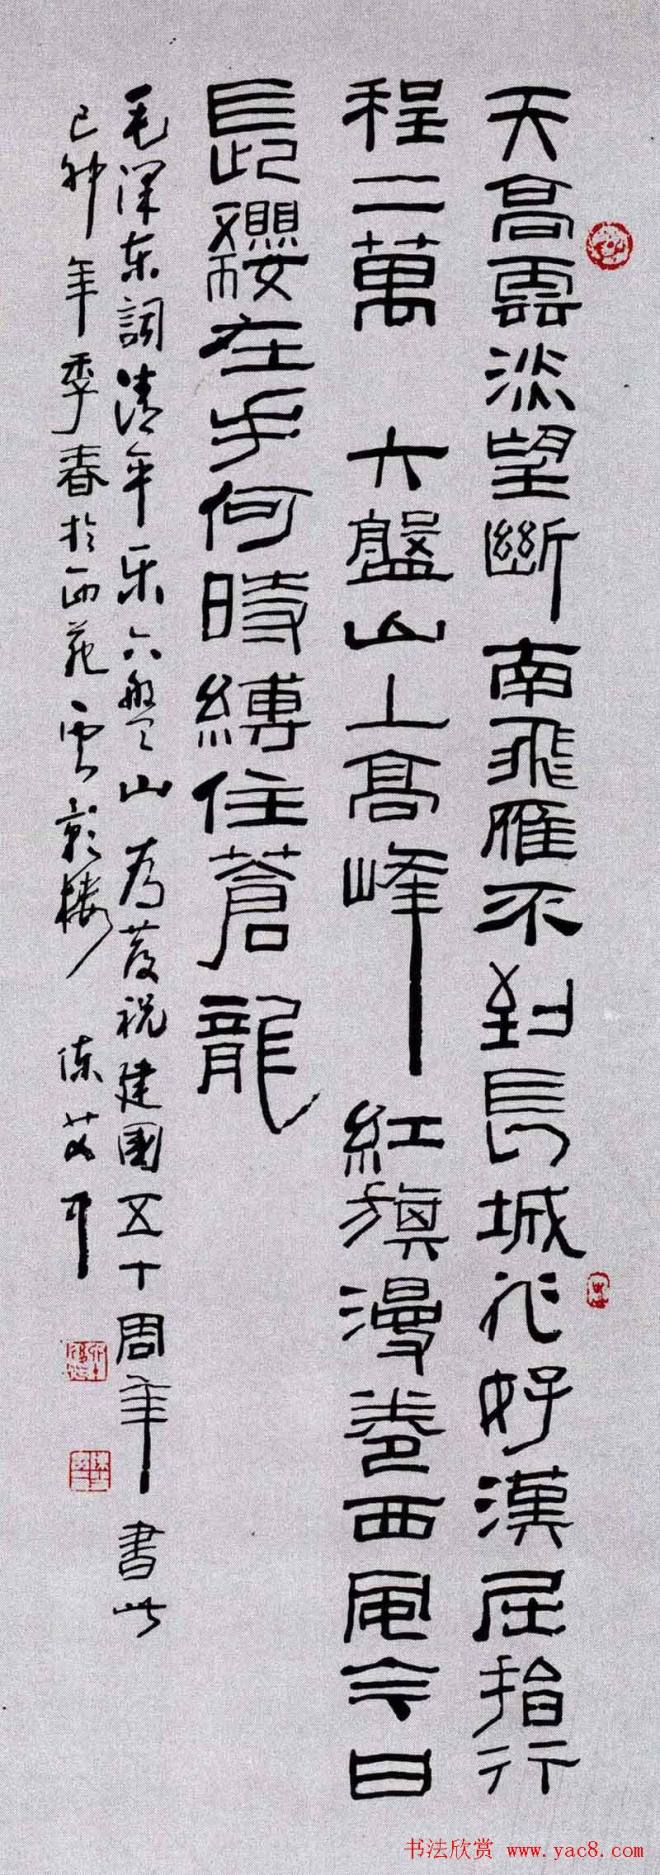 天高雲淡望斷南飛雁不到長城非好漢屈指行
程二萬 六盤山上高峰 紅旗漫卷西風今日
長纓在手何時縛住蒼龍
毛澤东詞清平乐六盤山 为慶祝建國五十周年 書此
己卯年季春於西苑雲影樓 陈艾中
书法欣赏 www.yac8.com